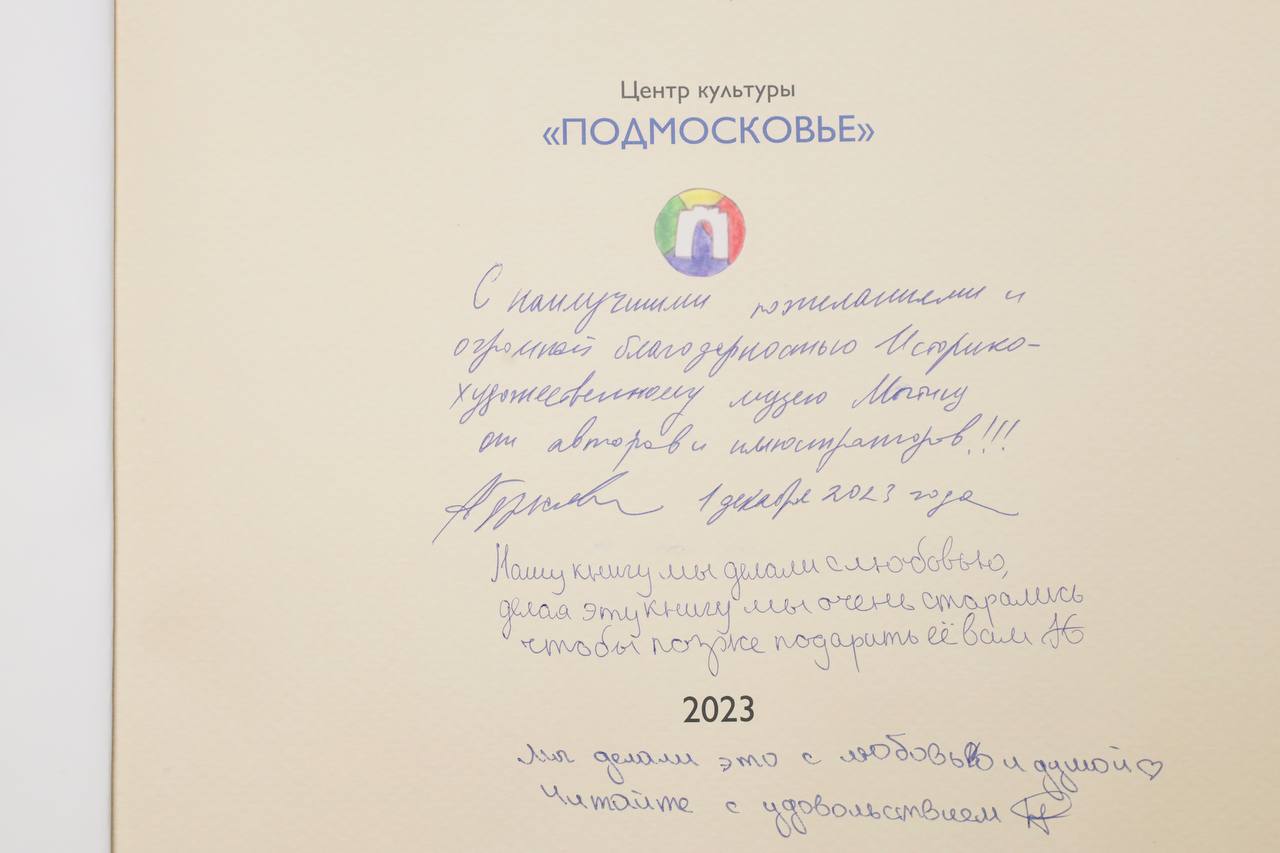 Центр культуры
«ПОДМОСКОВЬЕ»
С наилучшими пожеланиями и
огромной благодарностью Историко-
художественному музею Мытищ
от авторов и иллюстраторов!!!
1 декабря 2023 года
Нашу книгу мы делали с любовью,
делая эту книгу мы очень старались
чтобы позже подарить её вам
2023
Мы делали это с любовью и душой♡
Читайте с удовольствием